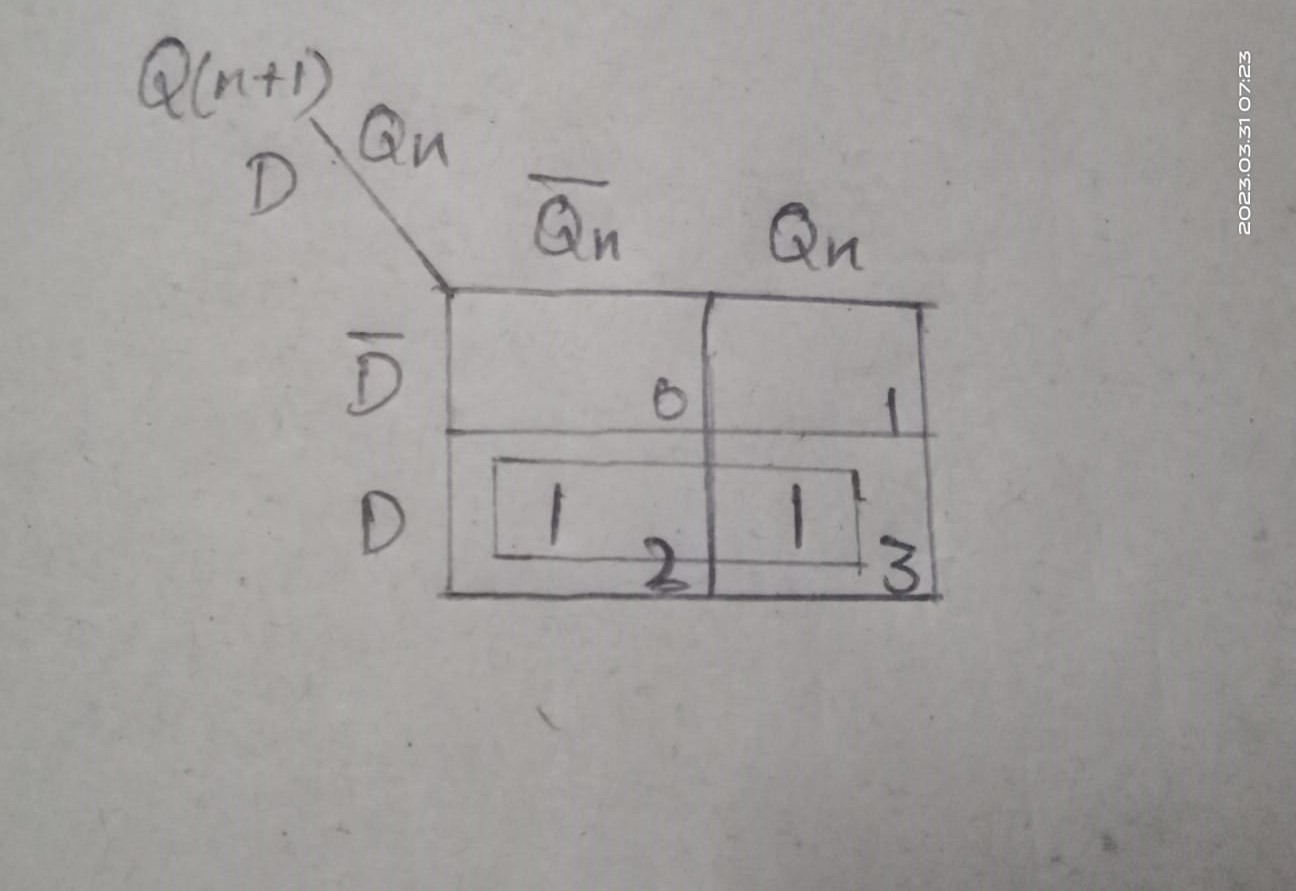 Q(n+1)
Qn
D
Q̅n Qn
D̅ 0 1
D 1 2 1 3
2023.03.31 07:23